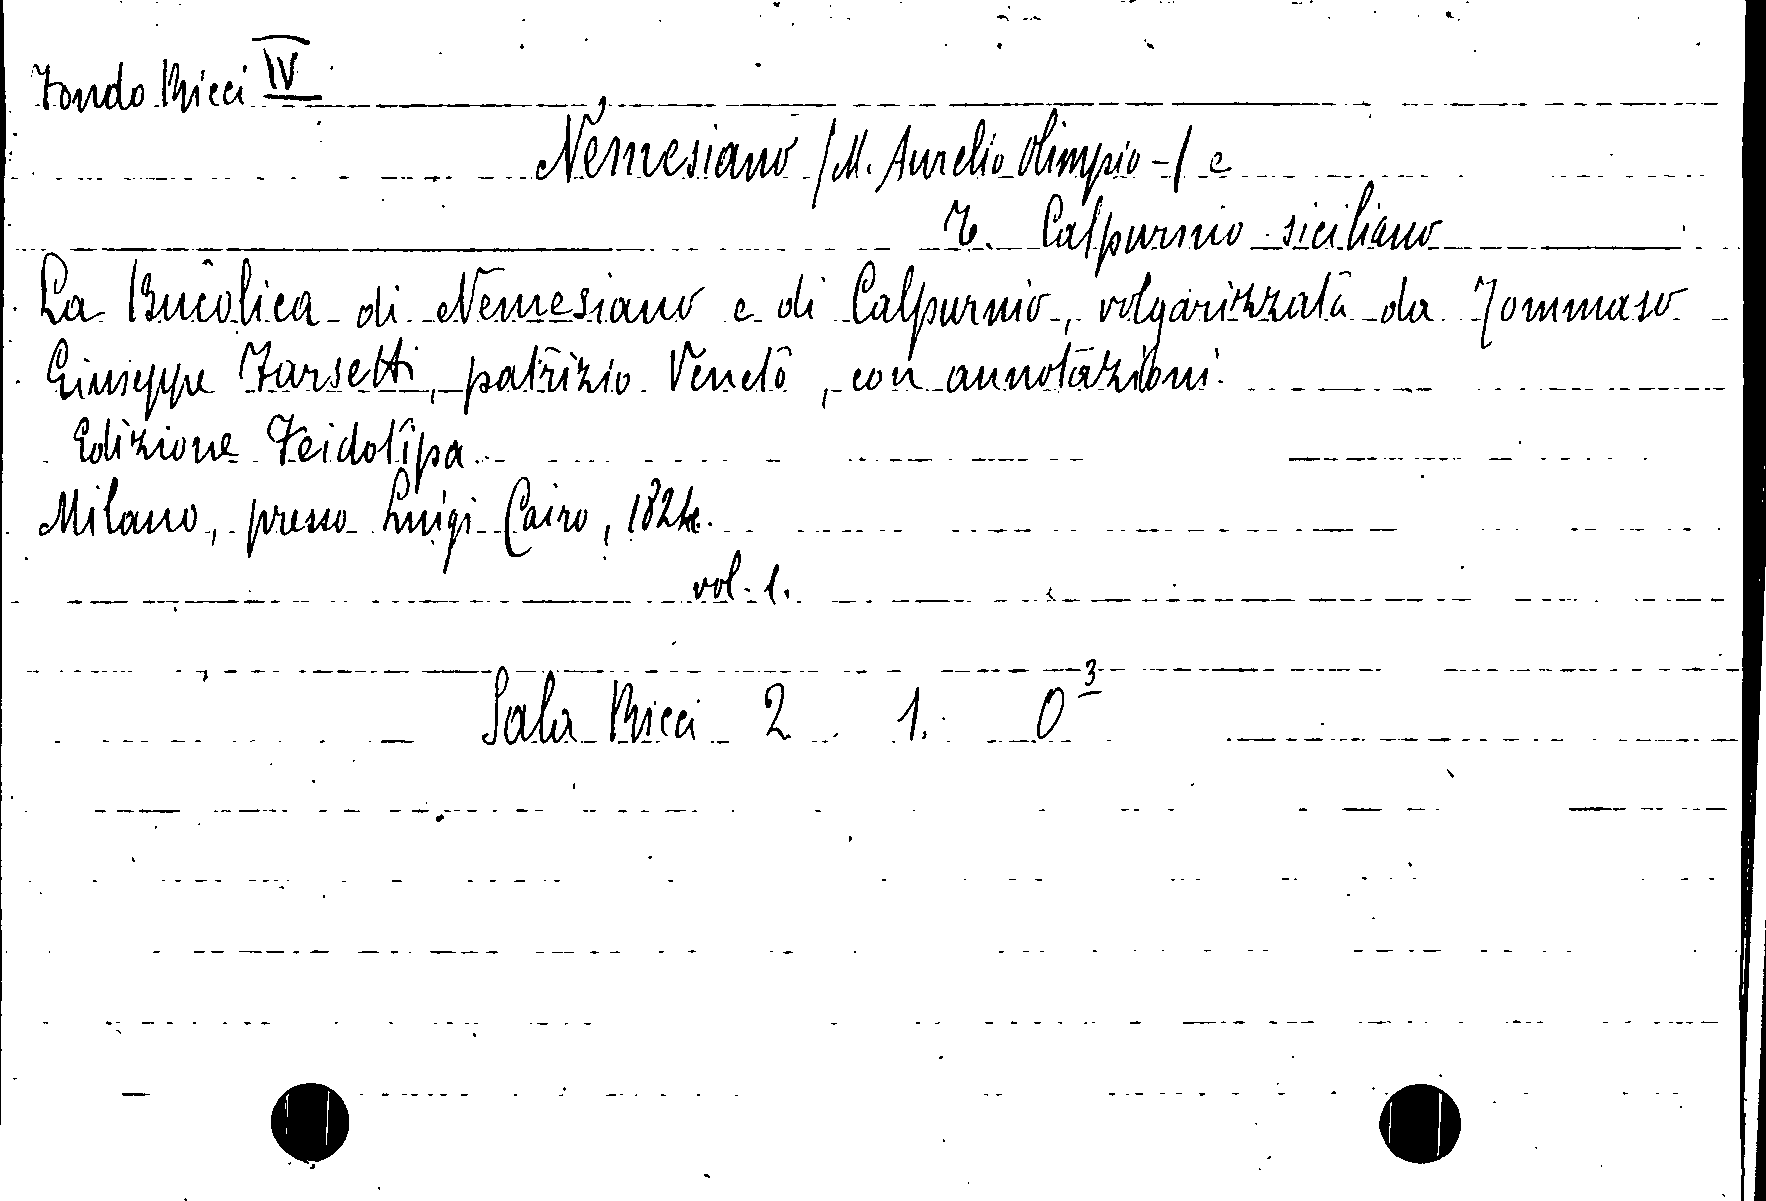 Fondo Ricci IV
Nemesiano /M. Aurelio Olimpio-/ e
T. Calpurnio siciliano
La Bucolica di Nemesiano e di Calpurnio, volgarizzata da Tommaso
Giuseppe Farsetti, patrizio Veneto, con annotazioni.
Edizione Feidotipa
Milano, presso Luigi Cairo, 1824.
vol. 1.
Sala Ricci 2 1. O 3